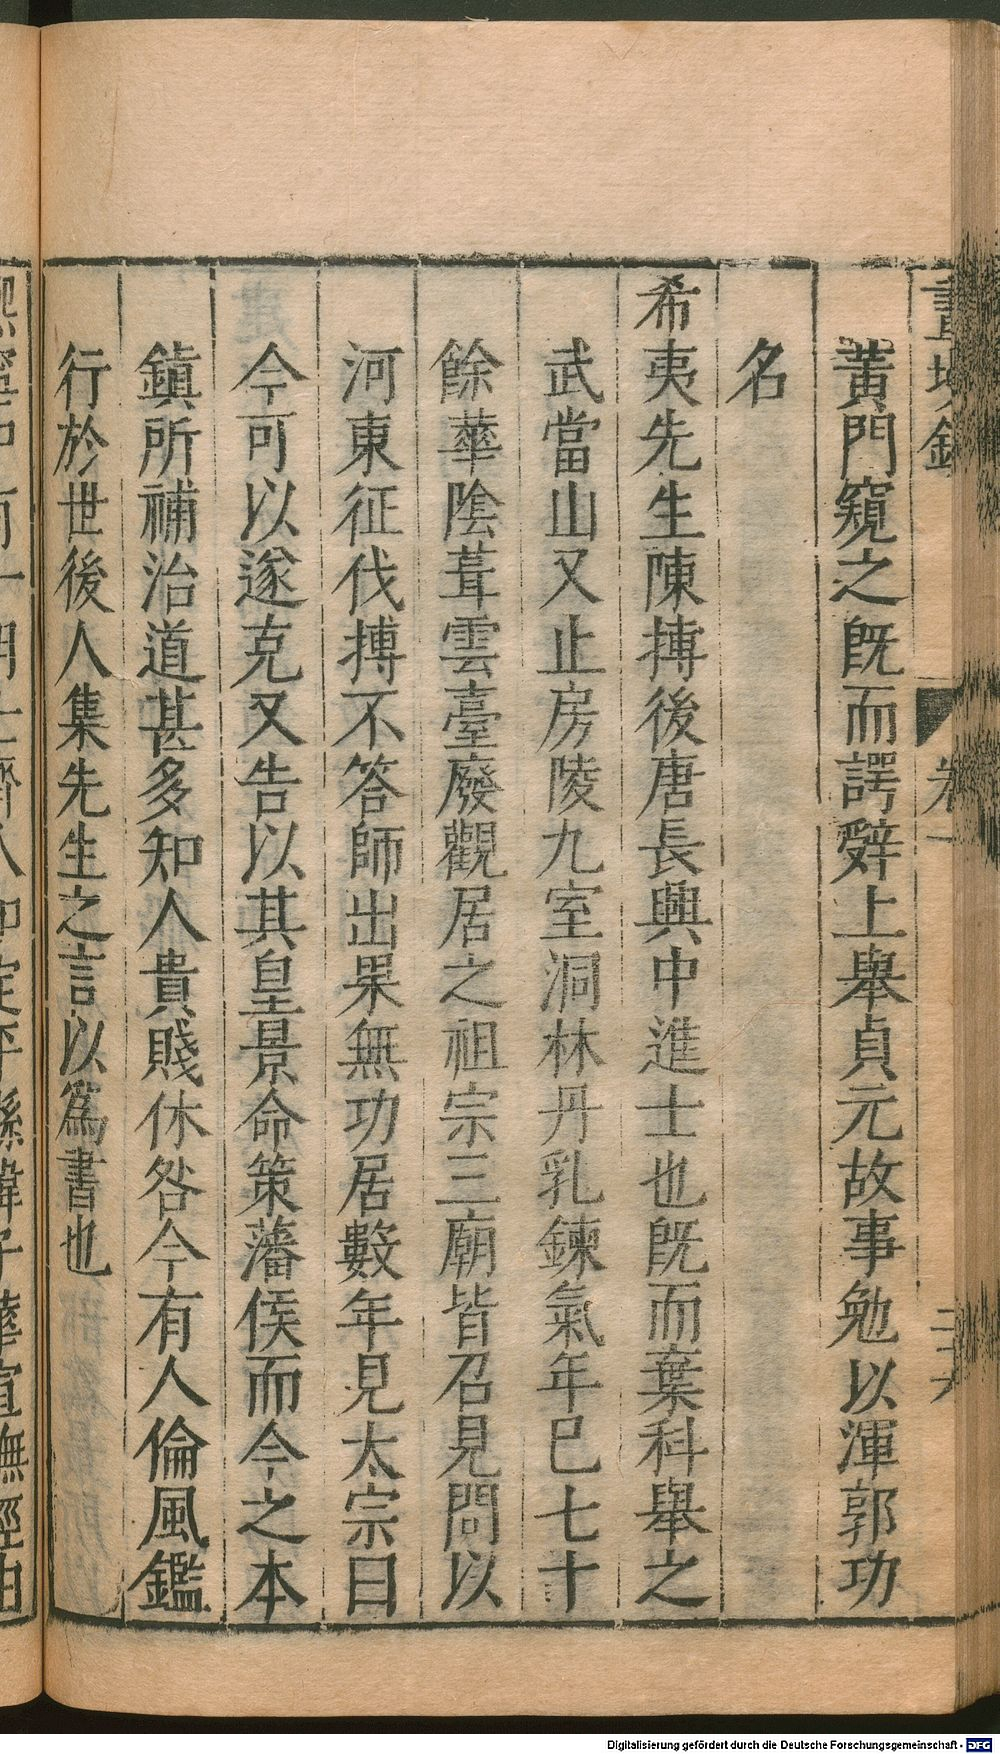 黄門窺之旣而諤辤上舉貞元故事勉以渾郭功
名
希夷先生陳摶後唐長興中進士也旣而棄科舉之
武當山又止房陵九室洞林丹乳鍊氣年巳七十
餘華隂葺雲臺廢觀居之祖宗三廟皆召見問以
河東征伐摶不答師出果無功居數年見太宗曰
今可以遂克又告以其皇景命策藩侯而今之本
鎮所補治道甚多知人貴賤休咎今有人倫風鑑
行於世後人集先生之言以爲書也
卷一
Digitalisierung gefördert durch die Deutsche Forschungsgemeinschaft - DFG